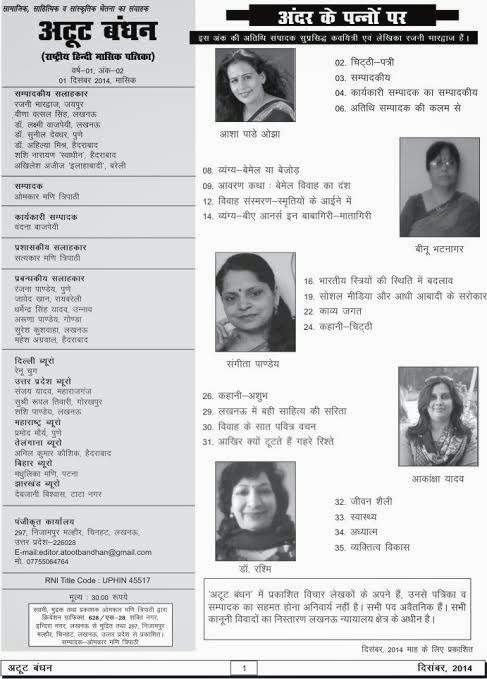 सामाजिक, साहित्यिक व सांस्कृतिक चेतना का संवाहक
अटूट बंधन
(राष्ट्रीय हिन्दी मासिक पत्रिका)
वर्ष–01, अंक–02
01 दिसंबर 2014, मासिक
सम्पादकीय सलाहकार
रजनी भारद्वाज, जयपुर
वीणा वत्सल सिंह, लखनऊ
डॉ. लक्ष्मी बाजपेयी, लखनऊ
डॉ. सुनील देवधर, पुणे
डॉ. अहिल्या मिश्र, हैदराबाद
शशि नारायण 'स्वाधीन', हैदराबाद
अखिलेश अजीज 'इलाहाबादी', बरेली
सम्पादक
ओमकार मणि त्रिपाठी
कार्यकारी सम्पादक
वंदना बाजपेयी
प्रशासकीय सलाहकार
सत्यकार मणि त्रिपाठी
प्रबन्धकीय सलाहकार
रंजना पाण्डेय, पुणे
जावेद खान, रायबरेली
धर्मेन्द्र सिंह यादव, उन्नाव
अरूणा पाण्डेय, गोण्डा
सुरेश कुशवाहा, लखनऊ
महेश अग्रवाल, हैदराबाद
दिल्ली ब्यूरो
रेनू चुग
उत्तर प्रदेश ब्यूरो
संजय यादव, महाराजगंज
सुश्री रूपल तिवारी, गोरखपुर
शशि पाण्डेय, लखनऊ
महाराष्ट्र ब्यूरो
प्रमोद मौर्य, पुणे
तेलंगाना ब्यूरो
अनिल कुमार कौशिक, हैदराबाद
बिहार ब्यूरो
मधुलिका मणि, पटना
झारखंड ब्यूरो
देबजानी बिश्वास, टाटा नगर
पंजीकृत कार्यालय
297, निजामपुर मल्हौर, चिनहट, लखनऊ,
उत्तर प्रदेश–226028
E-mail:editor.atootbandhan@gmail.com
मो. 07755064764
RNI Title Code : UPHIN 45517
मूल्य : 30.00 रूपये
स्वामी, मुद्रक तथा प्रकाशक ओमकार मणि त्रिपाठी द्वारा
क्रियेशन ग्राफिक्स 628/एस–28, शक्ति नगर,
इन्दिरा नगर, लखनऊ से मुद्रित तथा 297, निजामपुर
मल्हौर, चिनहट, लखनऊ, उत्तर प्रदेश से प्रकाशित।
सम्पादक–ओमकार मणि त्रिपाठी
अंदर के पन्नों पर
इस अंक की अतिथि संपादक सुप्रसिद्ध कवयित्री एवं लेखिका रजनी भारद्वाज हैं।
आशा पांडे ओझा
02. चिट्ठी–पत्री
03. सम्पादकीय
04. कार्यकारी सम्पादक का सम्पादकीय
06. अतिथि सम्पादक की कलम से
08. व्यंग्य–बेमेल या बेजोड़
09. आवरण कथा : बेमेल विवाह का दंश
12. विवाह संस्मरण–स्मृतियों के आईने में
14. व्यंग्य–बीए आनर्स इन बाबागिरी–मातागिरी
बीनू भटनागर
संगीता पाण्डेय
16. भारतीय स्त्रियों की स्थिति में बदलाव
19. सोशल मीडिया और आधी आबादी के सरोकार
22. काव्य जगत
24. कहानी–चिट्ठी
26. कहानी–अशुभ
29. लखनऊ में बही साहित्य की सरिता
30. विवाह के सात पवित्र वचन
31. आखिर क्यों टूटते हैं गहरे रिश्ते
आकांक्षा यादव
डॉ. रश्मि
32. जीवन शैली
33. स्वास्थ्य
34. अध्यात्म
35. व्यक्तित्व विकास
'अटूट बंधन' में प्रकाशित विचार लेखकों के अपने हैं, उनसे पत्रिका व
सम्पादक का सहमत होना अनिवार्य नहीं है। सभी पद अवैतनिक हैं। सभी
कानूनी विवादों का निस्तारण लखनऊ न्यायालय क्षेत्र के अधीन है।
दिसंबर, 2014 माह के लिए प्रकाशित
अटूट बंधन
1
दिसंबर, 2014